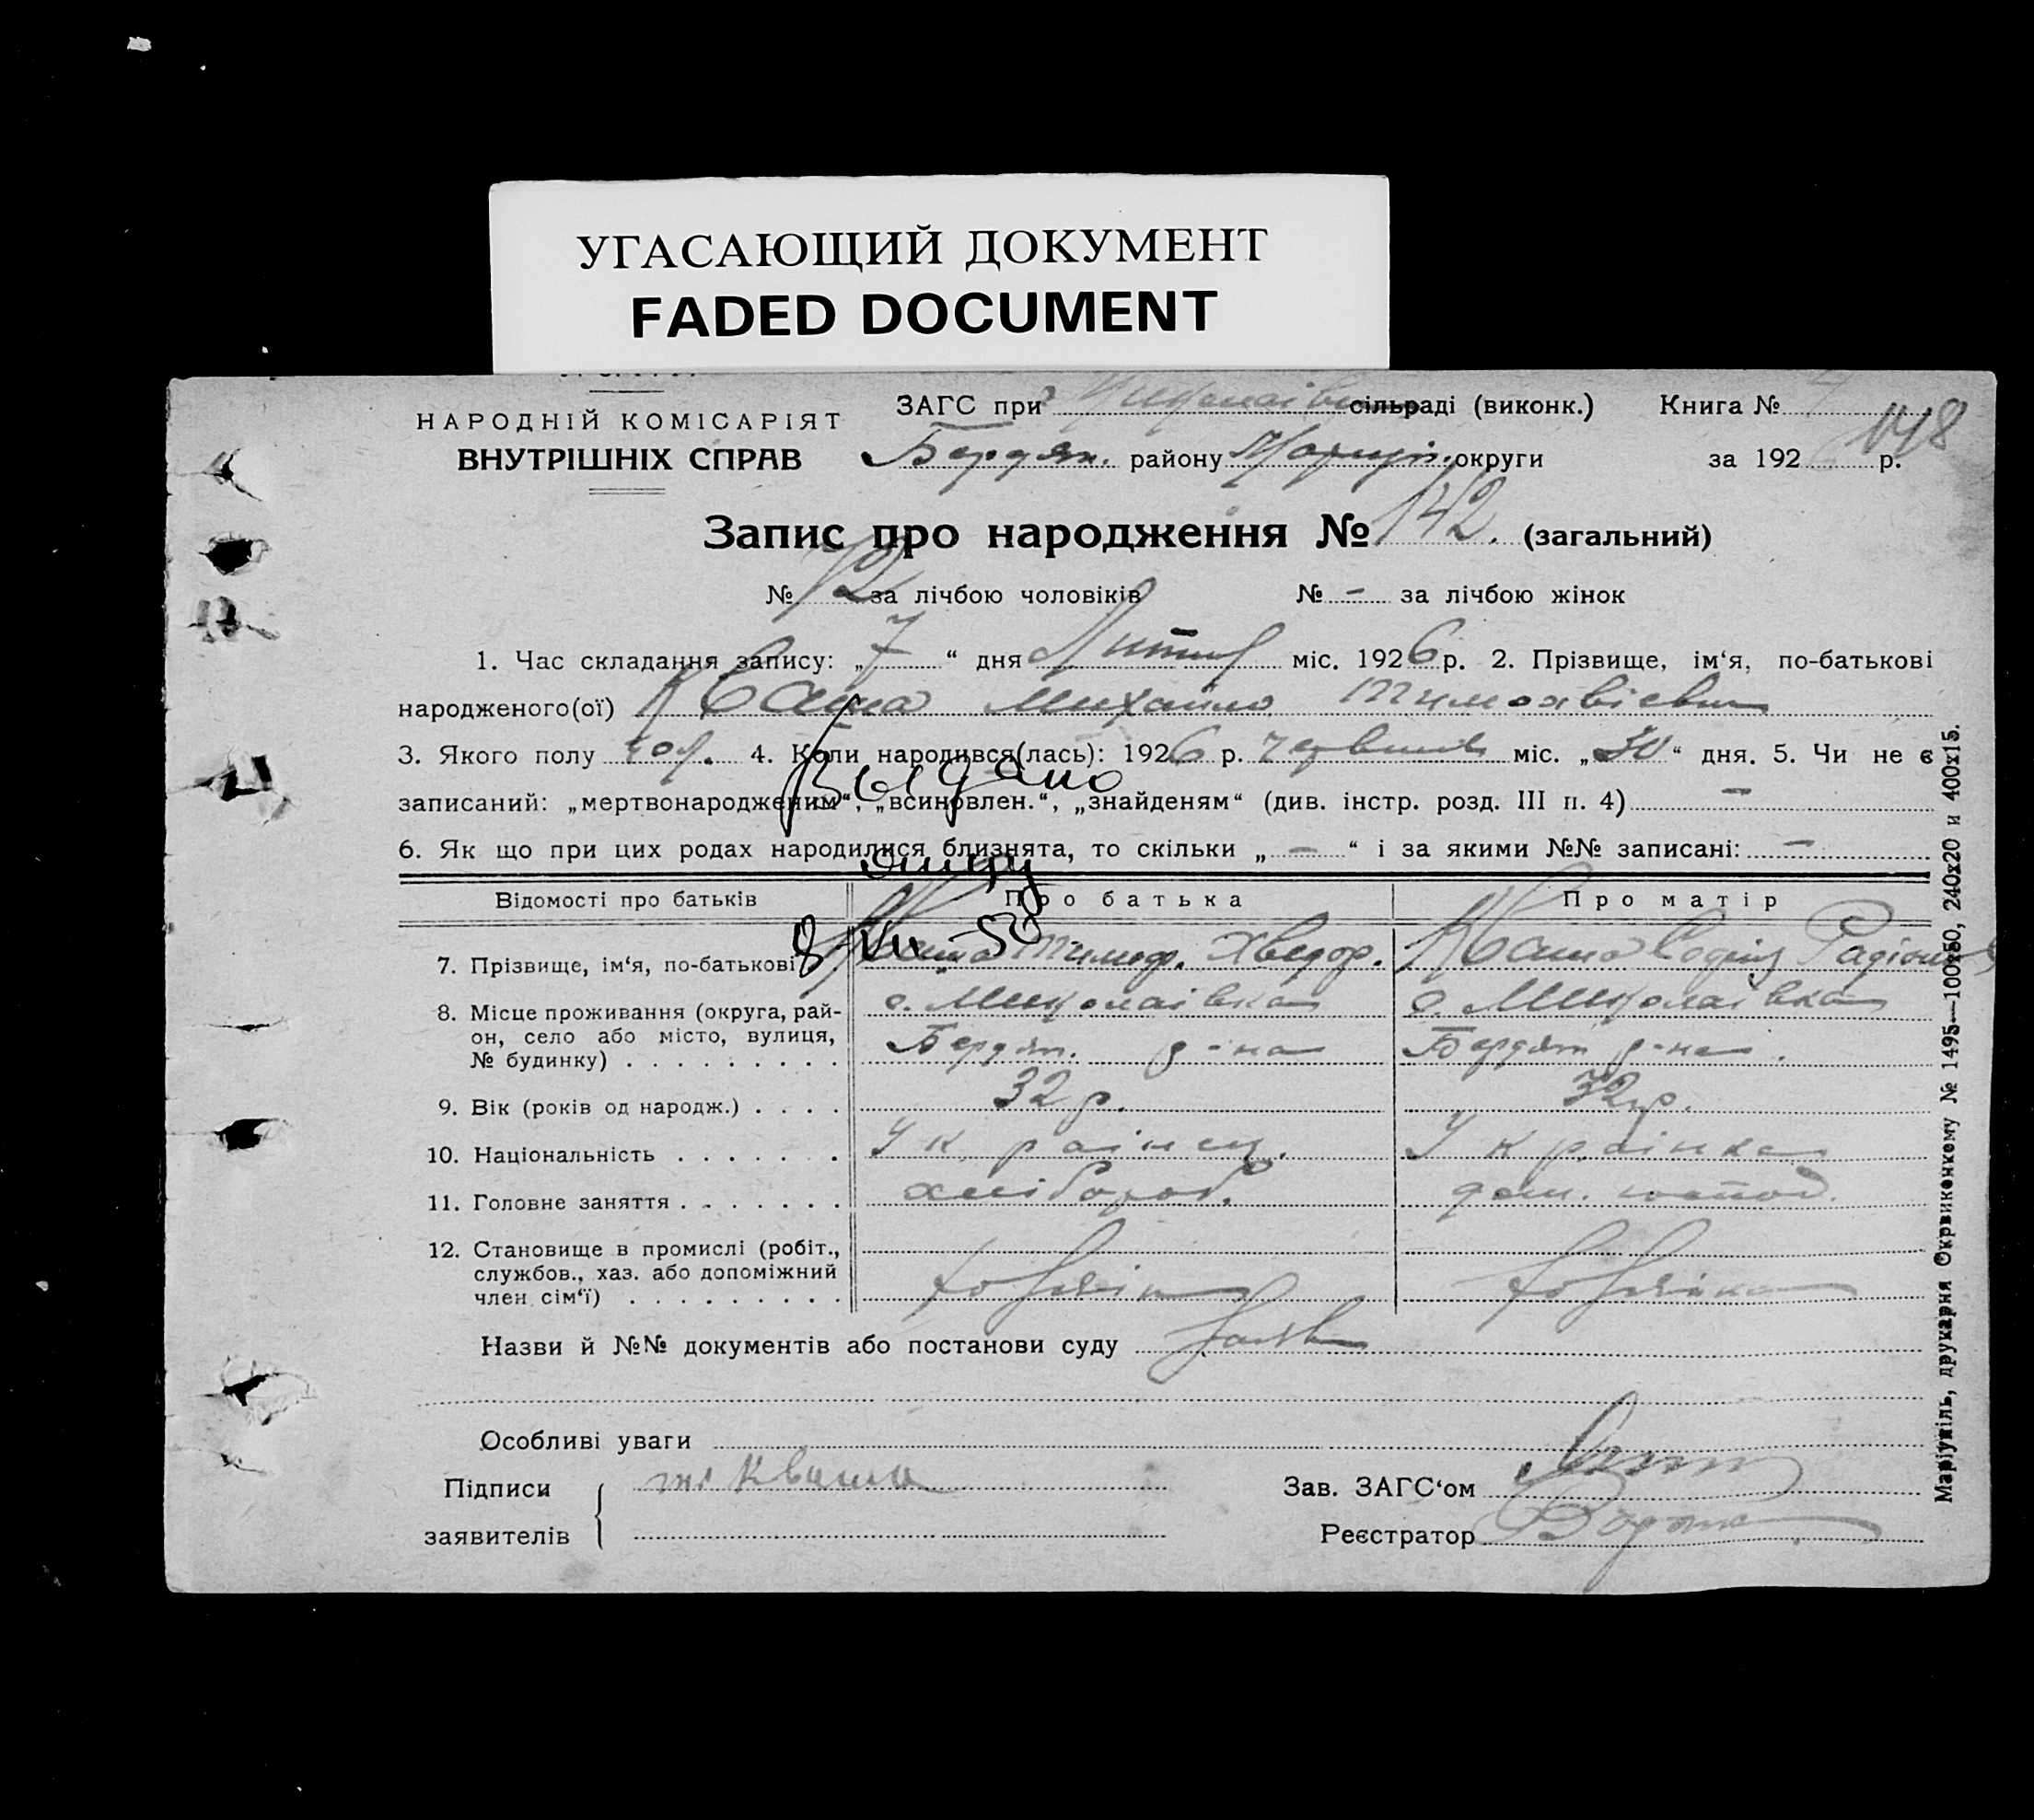 УГАСАЮЩИЙ ДОКУМЕНТ
FADED DOCUMENT
НАРОДНІЙ КОМІСАРІЯТ
ВНУТРІШНІХ СПРАВ
ЗАГС при сільраді (виконк.) Книга №
148
Бердян. району Маріуп. округи за 192 р.
Запис про народження № 142. (загальний)
№ 72 за лічбою чоловіків № - за лічбою жінок
1. Час складання запису: „7“ дня Липня міс. 1926 р. 2. Прізвище, ім‘я, по-батькові
народженого(ої) Кваша Михайло Тимохвієвич
3. Якого полу чол. 4. Коли народився(лась): 1926 р. червня міс. „30“ дня. 5. Чи не є
Выдано
записаний: „мертвонародженим“, „всиновлен.“, „знайденям“ (див. інстр. розд. III п. 4) -
6. Як що при цих родах народилися близнята, то скільки „-“ і за якими №№ записані: -
Відомості про батьків Про батька Про матір
8 VII-50
7. Прізвище, ім‘я, по-батькові Кваша Тимоф. Хведор. Кваша Радіон
8. Місце проживання (округа, рай- с. Миколаівка с. Миколаівка
он, село або місто, вулиця, Бердян. р-на Бердян р-на.
№ будинку) . . . . . . . . .
9. Вік (років од народж.) . . . . 32 р. 32 р.
10. Національність . . . . . . . Украінец. Украінка
11. Головне заняття . . . . . . . хлібороб. дом. господ.
12. Становище в промислі (робіт.,
службов., хаз. або допоміжний
член сім‘ї) . . . . . . . . . хозяїн хозяйка
Назви й №№ документів або постанови суду
Особливі уваги
Підписи Кваша Зав. ЗАГС‘ом
заявителів Реєстратор
Маріупіль, друкарня Окрвиконкому № 1495—100х50, 240х20 и 400х15.